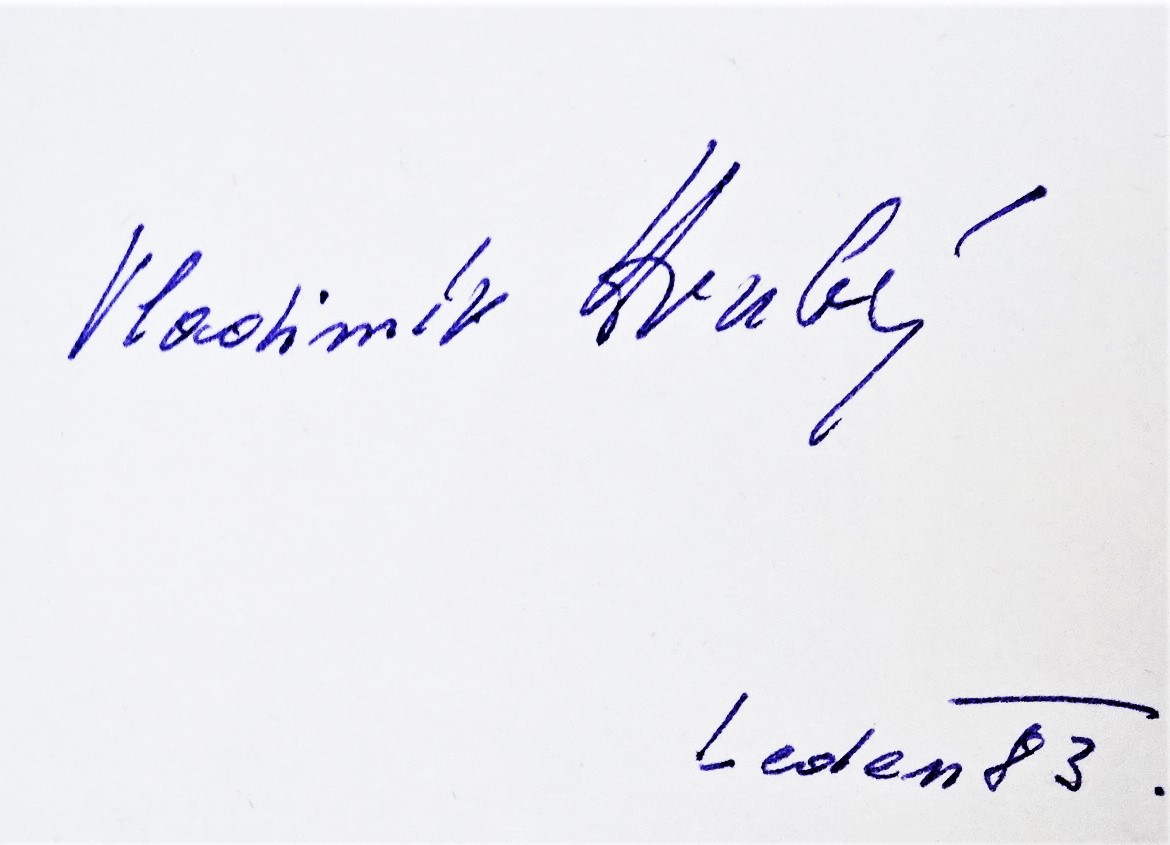 Vladimír Hrubý
Leden 83.